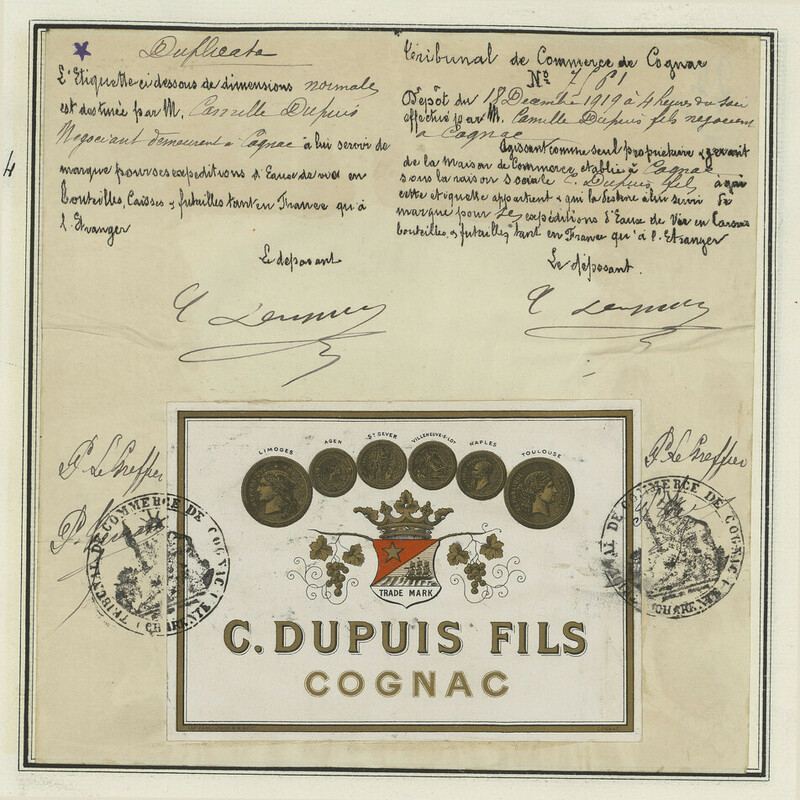 Duplicata
L'Etiquette ci dessous de dimensions normales
est destinée par M. Camille Dupuis
Negociant demeurant à Cognac à lui servir de
marque pour ses expéditions d'Eaux de vie en
Bouteilles, Caisses & futailles tant en France qu'à
l'Etranger
Le déposant
C Dupuis
Tribunal de Commerce de Cognac
Nº
Dépôt du 18 Decembre 1919 à 4 heures du soir
effectué par M. Camille Dupuis fils negociant
à Cognac
Agissant comme seul propriétaire & gérant
de la Maison de Commerce établie à Cognac
sous la raison sociale C. Dupuis fils à qui
cette etiquette appartient & qui la destine à lui servir de
marque pour ses expéditions d'Eaux de Vie en Caisses
bouteilles, & futailles, tant en France qu'à l'Etranger
Le déposant.
C Dupuis
4
P. Le Greffier
P. Le Greffier
TRIBUNAL DE COMMERCE DE COGNAC (CHARENTE)
TRIBUNAL DE COMMERCE DE COGNAC (CHARENTE)
LIMOGES
AGEN
ST SEVER
VILLENEUVE-S-LOT
NAPLES
TOULOUSE
TRADE MARK
C. DUPUIS FILS
COGNAC